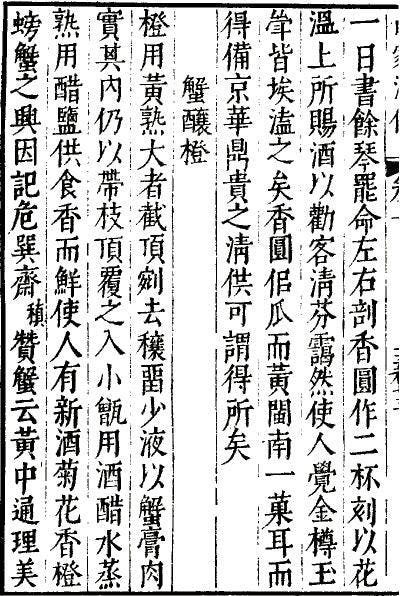 一日書餘琴罷命左右剖香圓作二杯刻以花
溫上所賜酒以勸客清芬靄然使人覺金樽玉
斝皆埃溘之矣香圓佀瓜而黃閩南一菓耳而
得備京華鼎貴之清供可謂得所矣
蟹釀橙
橙用黃熟大者截頂剜去穰畱少液以蟹膏肉
實其內仍以帶枝頂覆之入小甑用酒醋水蒸
熟用醋鹽供食香而鮮使人有新酒菊花香橙
螃蟹之興因記危巽齋稹贊蟹云黃中通理美